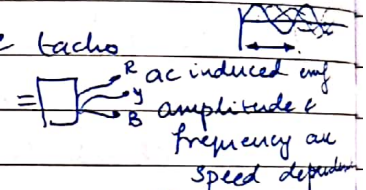 tacho
R ac induced emf
= y amplitude &
B frequency are
speed dependen